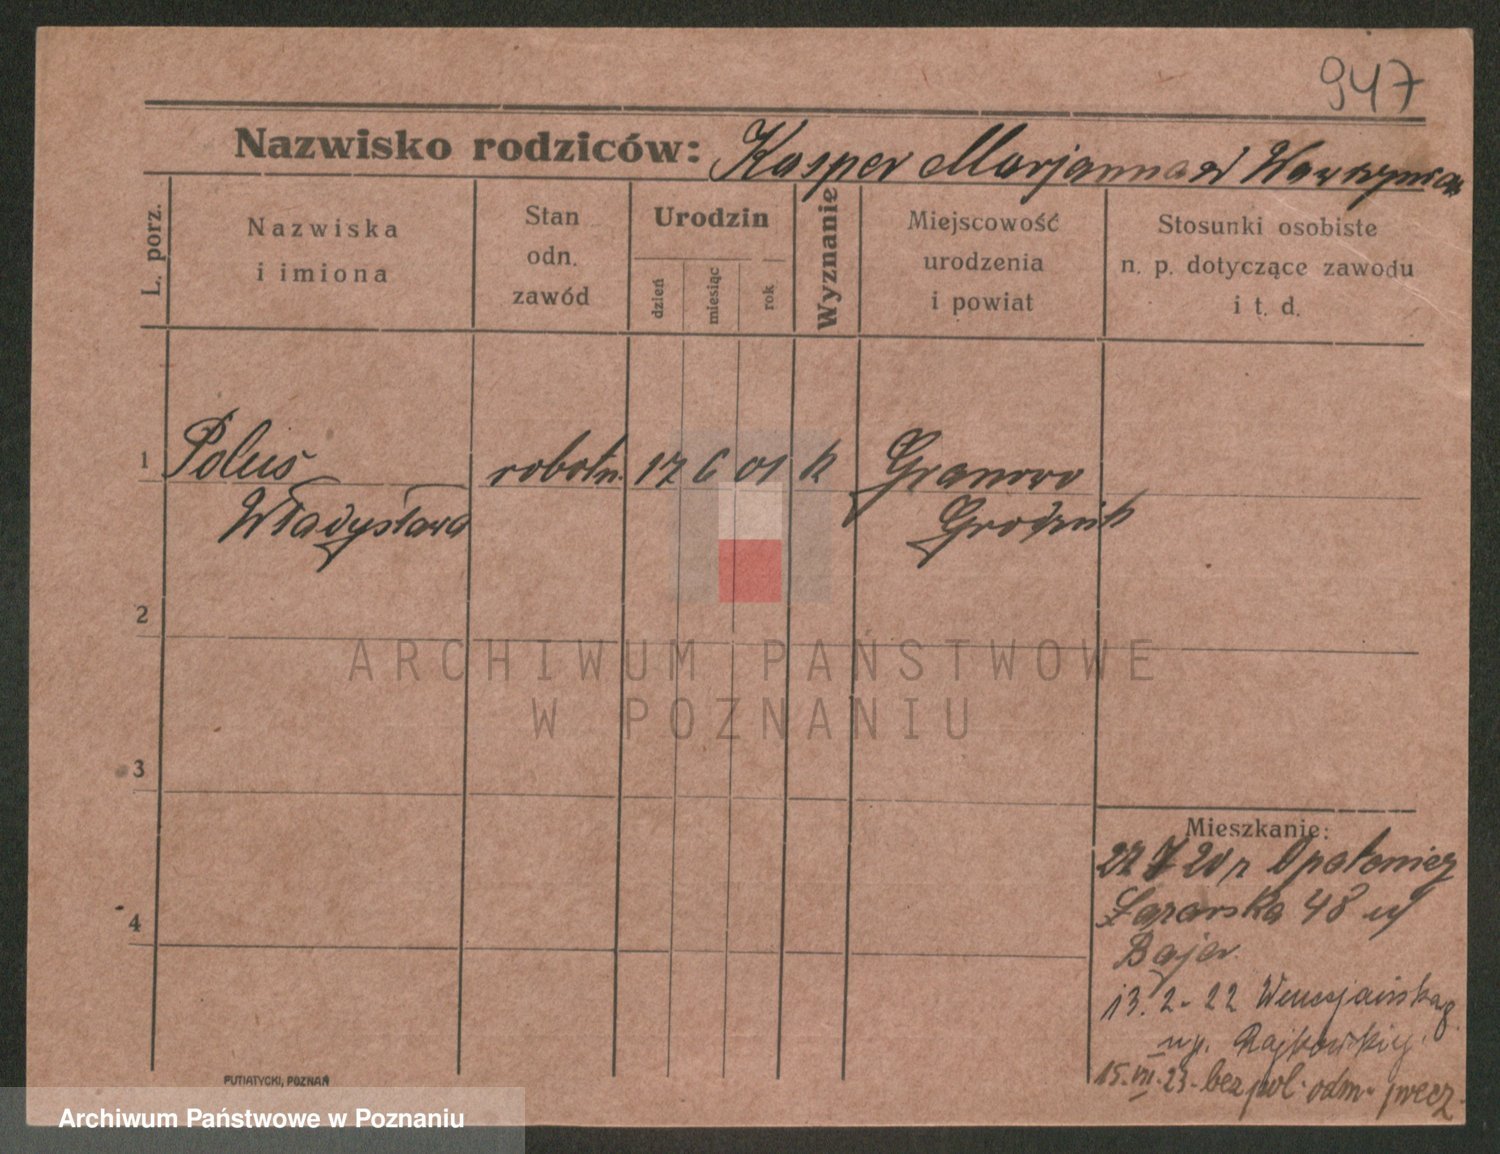 947
Nazwisko rodziców: Kasper Marjanna zd Wawrzyniak
L. porz.
Nazwiska
i imiona
Stan
odn.
zawód
Urodzin
dzień
miesiąc
rok
Wyznanie
Miejscowość
urodzenia
i powiat
Stosunki osobiste
n. p. dotyczące zawodu
i t. d.
1 Poluś robotn. 17 6 01 k Granowo
Władysława Grodzisk
2
ARCHIWUM PAŃSTWOWE
W POZNANIU
3
Mieszkanie:
20 r Opalenicy
4
Łazarska 48
Bajer
13. 2 - 22 Wenecjańska 8
Rajkowskiej
15. VII. 23 - bez pol. odm.
PUTIATYCKI, POZNAŃ
Archiwum Państwowe w Poznaniu